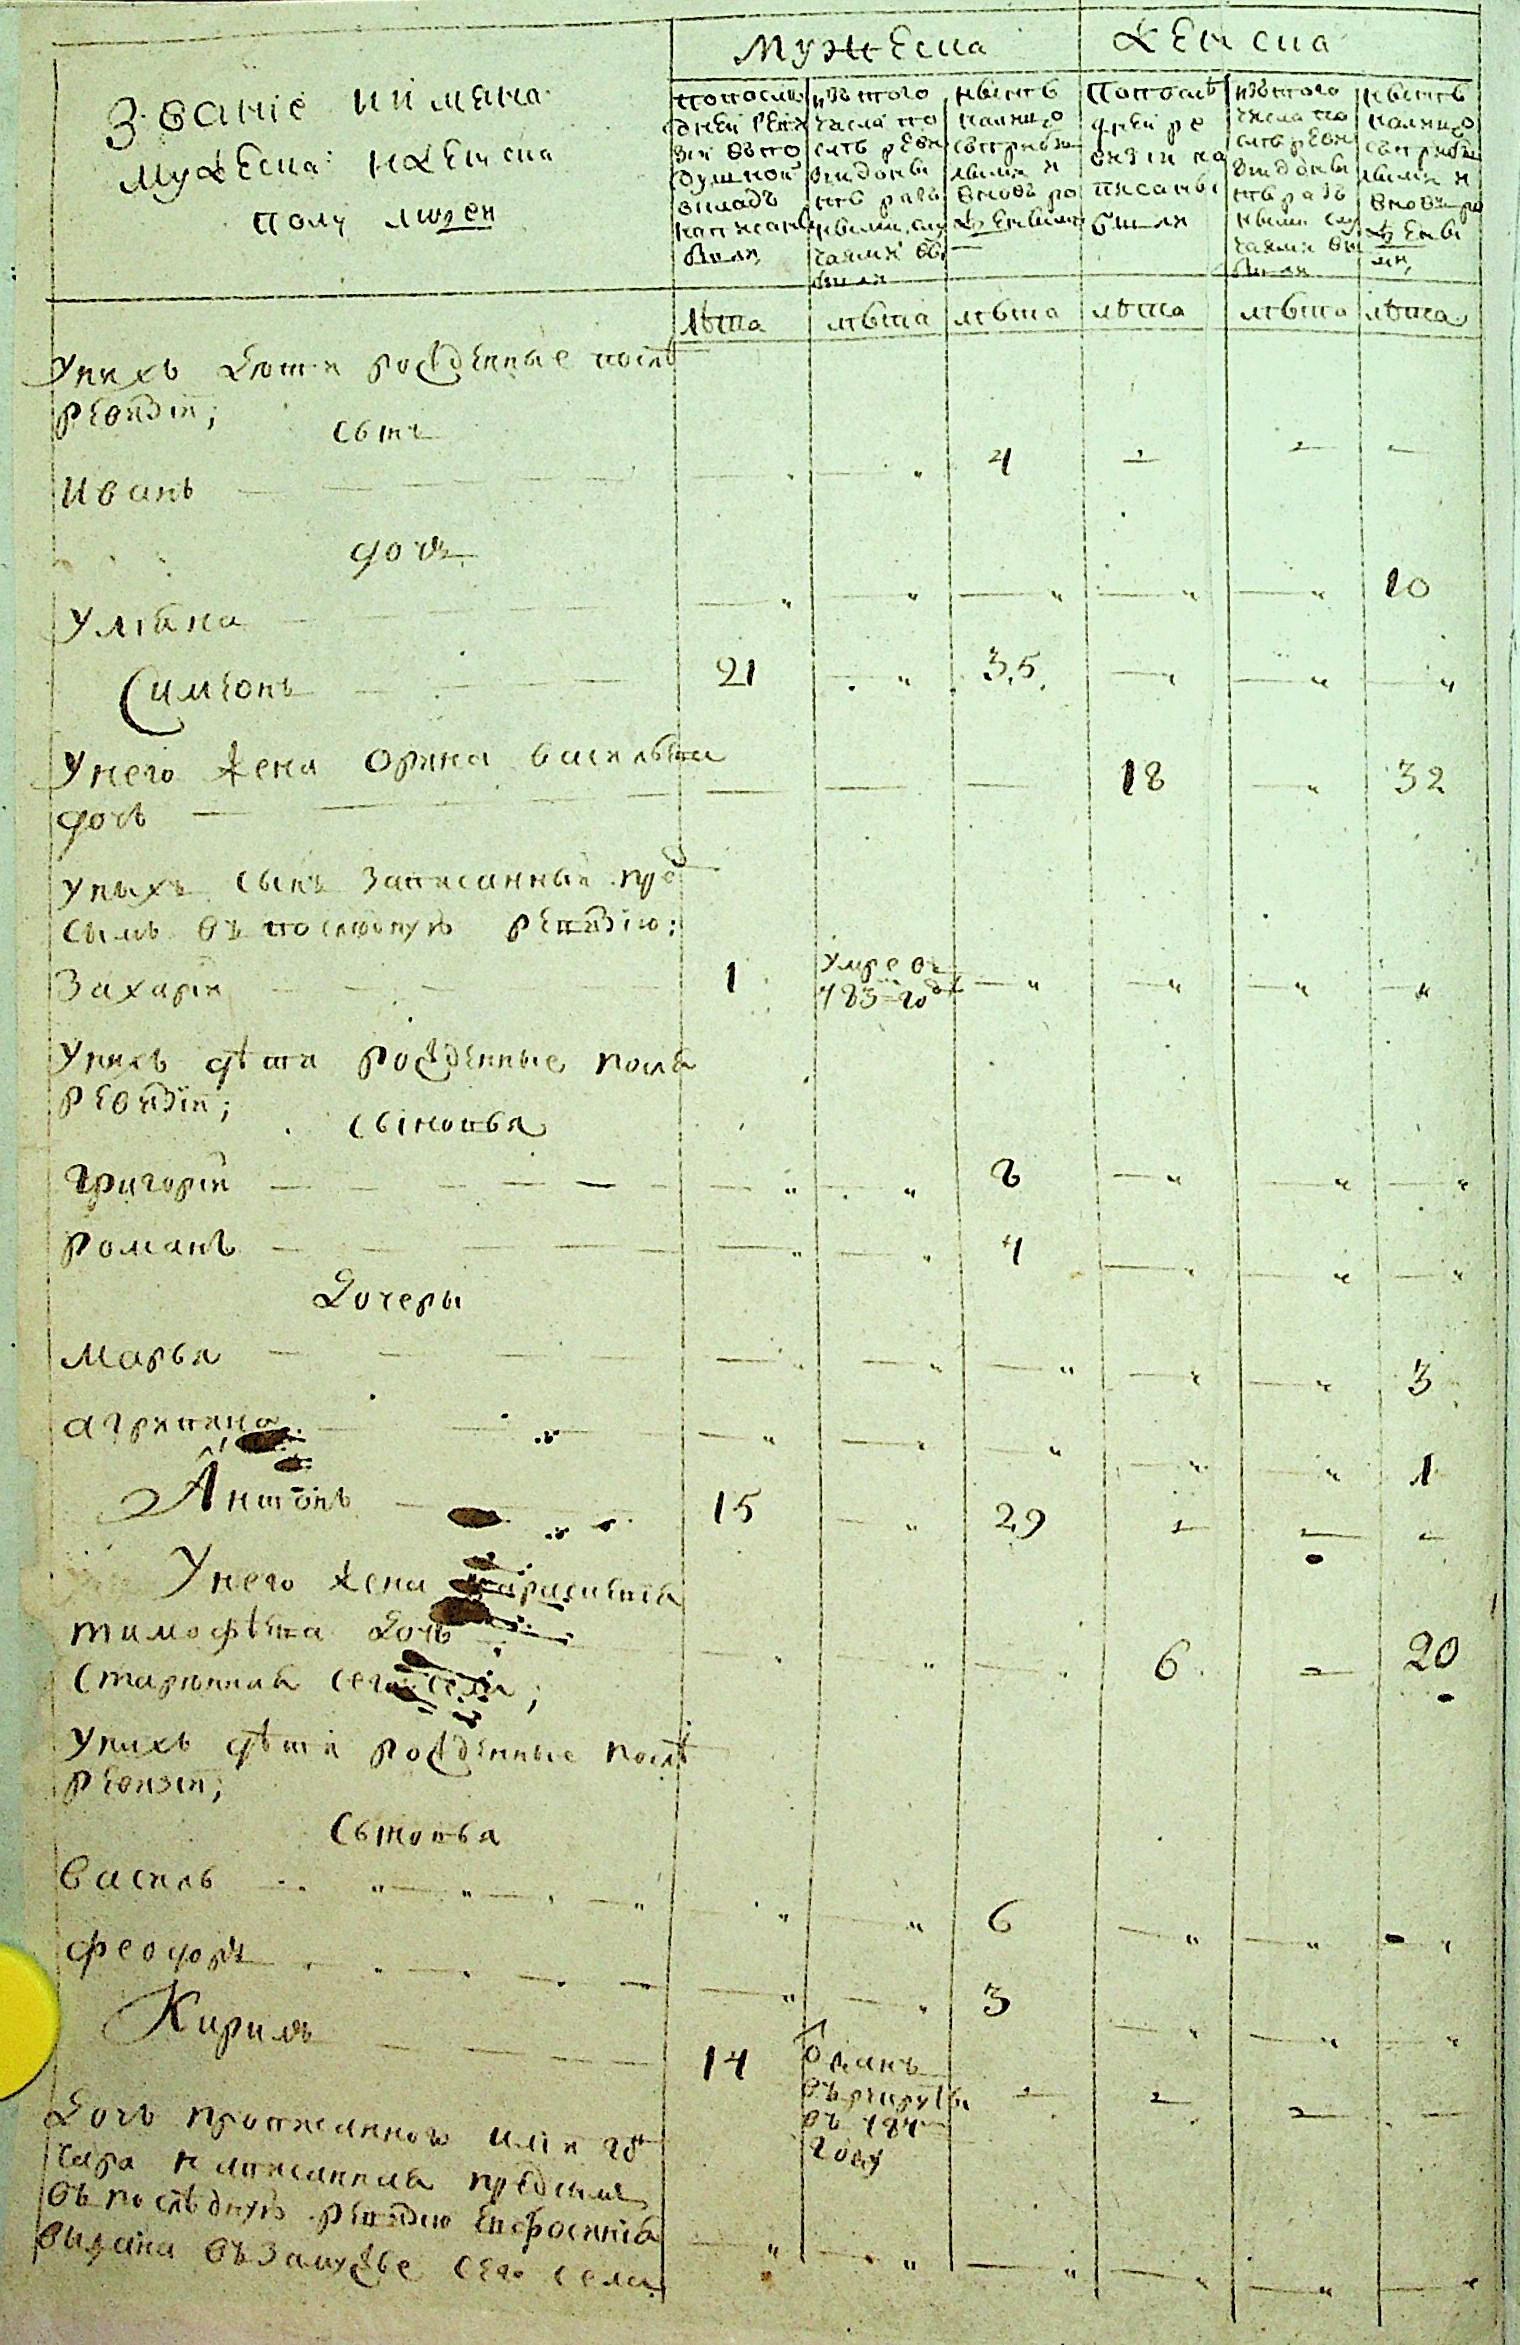 Мужеска Женска
Званіе и имяна
Мужеска: и женска
полу людей
по послѣ
дней реви
зіи въ по
душной
окладъ
написаны
были
изъ того
числа по
слѣ реви
зіи до ны
нѣ разн
ными слу
чаями вы
были
нынѣ
на лицо
съ прибы
лыми и
вновь ро
жденными
По послѣ
дней ре
визіи на
писаны
были
изъ того
числа по
слѣ реви
зіи до ны
нѣ раз
ными слу
чаями вы
были
нынѣ
на лицо
съ прибы
лыми и
вновь ро
жденны
ми,
лѣта лѣта лѣта лѣта лѣта лѣта
У нихъ дѣти рожденные послѣ
ревизіи;
сынъ
Иванъ — — — — 4 — — —
дочь
Уліана — — — — — — — 10
Симеонъ — — — 21 — 35. — — —
У него жена Орина Васильева
дочь — — — — — — 18 — 32
У ныхъ сынъ записанный пред
сымъ въ последную ревизію;
Захарій — — — 1 Умре въ 783 годѣ — — — —
У нихъ дѣти рожденные послѣ
ревизіи;
сыновья
Григорій — — — — — — 8 — — —
Романъ — — — — — — 4 — — —
Дочеры
Марья — — — — — — — — 3
Агрипина — — — — — — — 1
Антонъ — 15 — 29 — — —
У него жена Параскевія
Тимофѣева дочь —
старинная сего села; — — — 6. — 20
У нихъ дѣти рожденные послѣ
ревизіи;
Сыновья
Василь — — — — — 6 — — —
Феодоръ — — — — — 3 — — —
Кирилъ — — — — 14 Отданъ
въ рекруты
въ 784
году — — — —
Дочь прописанного
написанная предсымъ
въ послѣдную ревизію Евфросинія
выдана въ замужье сего села — — — — — —